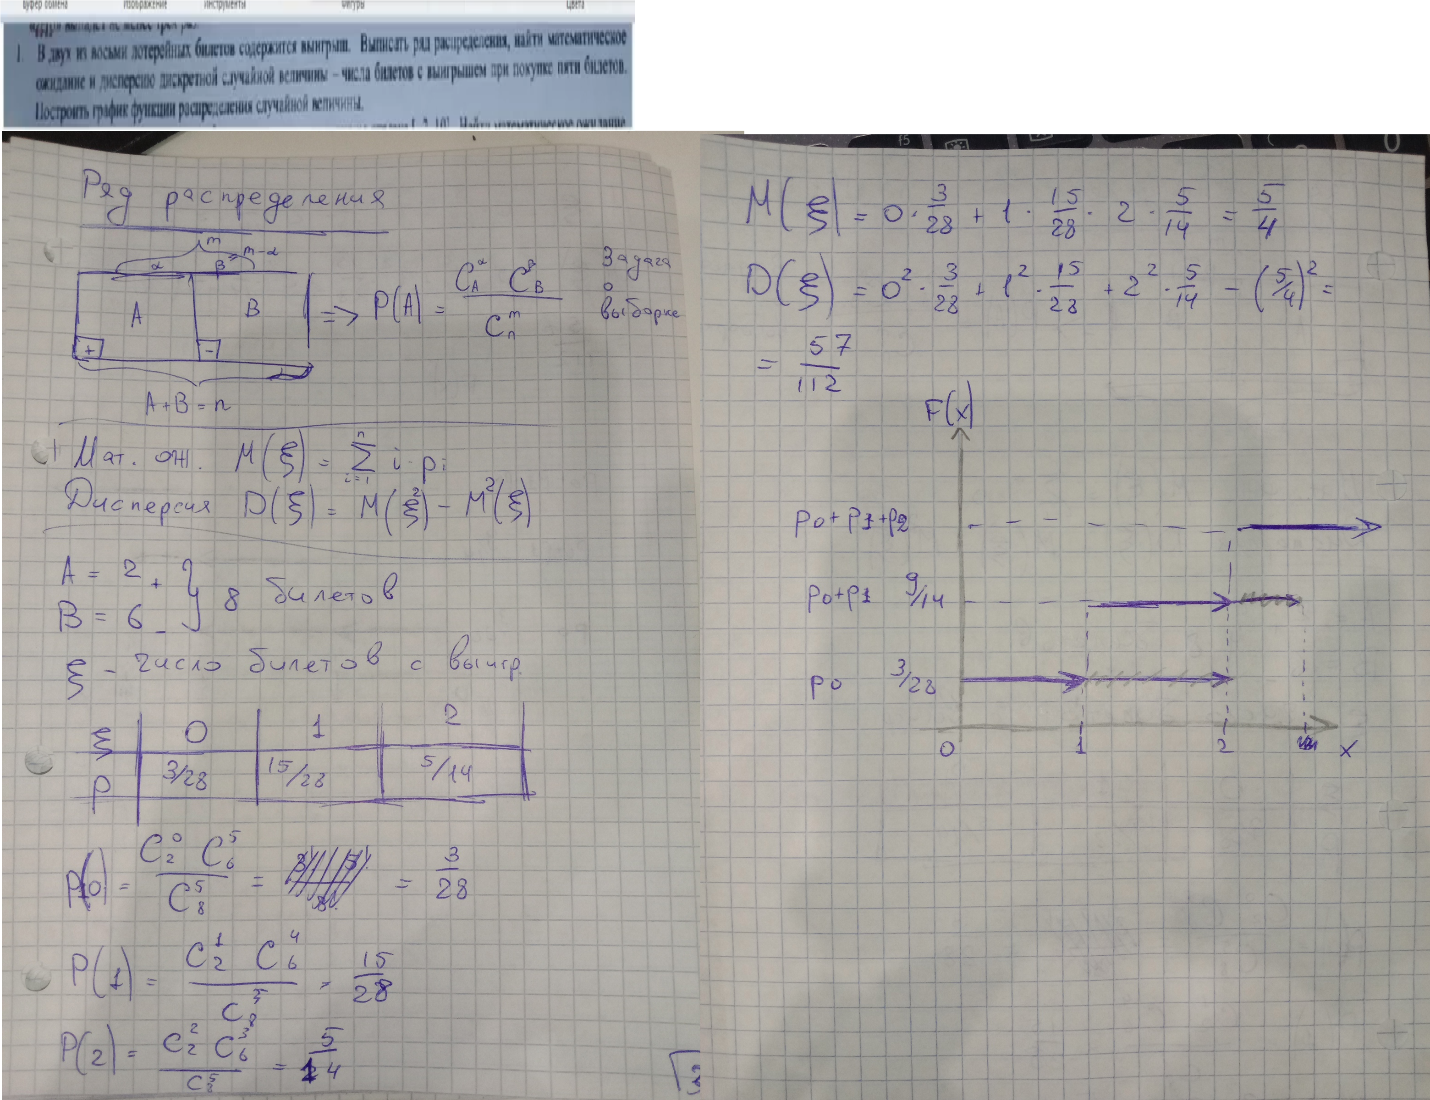 буфер обмена Изображение Инструменты Фигуры Цвета
1. В двух из восьми лотерейных билетов содержится выигрыш. Выписать ряд распределения, найти математическое
ожидание и дисперсию дискретной случайной величины – числа билетов с выигрышем при покупке пяти билетов.
Построить график функции распределения случайной величины.
Ряд распределения
m
α B = m-α
A B
+ -
A+B = n
=> P(A) = C_A^α C_B^β / C_n^m
Задача
о
выборке
Мат. ож. M(ξ) = Σ_{i=1}^n i · pi
Дисперсия D(ξ) = M(ξ²) - M²(ξ)
A = 2 +
B = 6 -
} 8 билетов
ξ - число билетов с выигр.
ξ 0 1 2
p 3/28 15/28 5/14
P(0) = C_2^0 C_6^5 / C_8^5 = = 3/28
P(1) = C_2^1 C_6^4 / C_8^5 = 15/28
P(2) = C_2^2 C_6^3 / C_8^5 = 5/14
M(ξ) = 0 · 3/28 + 1 · 15/28 · 2 · 5/14 = 5/4
D(ξ) = 0² · 3/28 + 1² · 15/28 + 2² · 5/14 - (5/4)² =
= 57/112
F(x)
p0 + p1 + p2
p0 + p1 9/14
p0 3/28
0 1 2 x